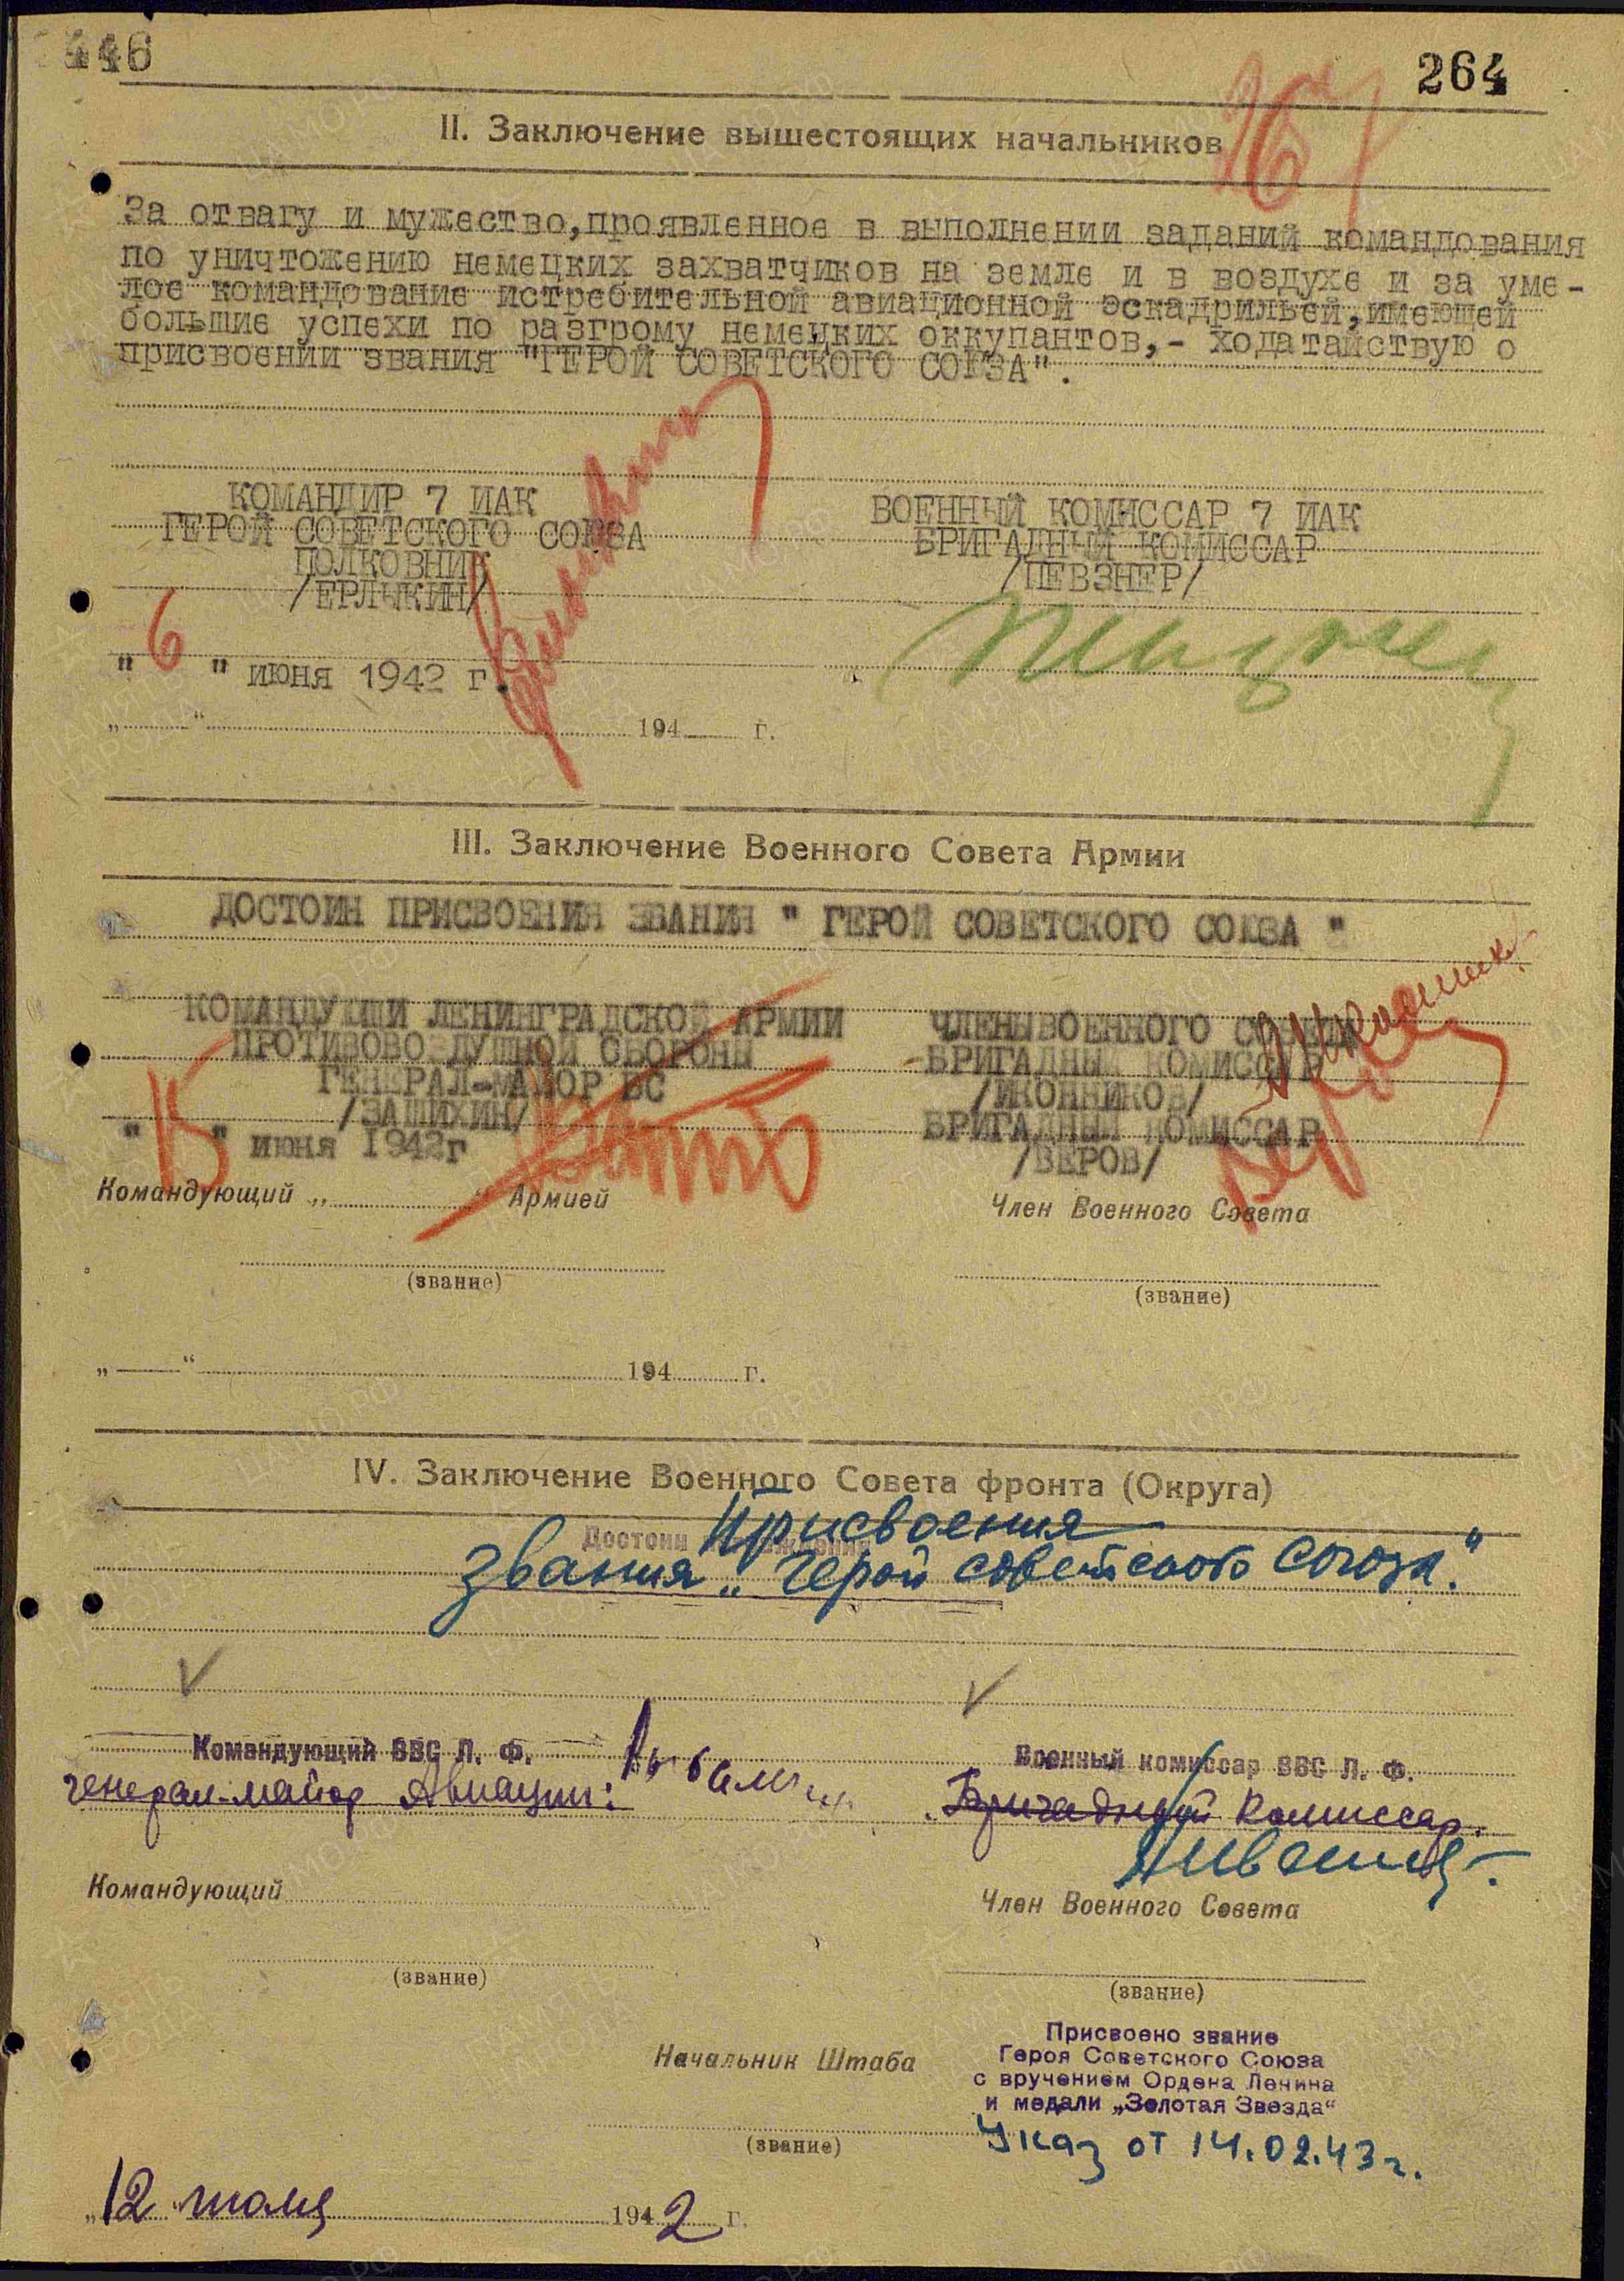 446
264
II. Заключение вышестоящих начальников
За отвагу и мужество,проявленное в выполнении заданий командования
по уничтожению немецких захватчиков на земле и в воздухе и за уме-
лое командование истребительной авиационной эскадрильей,имеющей
большие успехи по разгрому немецких оккупантов,- ходатайствую о
присвоении звания "ГЕРОЙ СОВЕТСКОГО СОЮЗА".
КОМАНДИР 7 ИАК
ГЕРОЙ СОВЕТСКОГО СОЮЗА
ПОЛКОВНИК
/ЕРЛЫКИН/
ВОЕННЫЙ КОМИССАР 7 ИАК
БРИГАДНЫЙ КОМИССАР
/ПЕВЗНЕР/
"6" июня 1942 г.
„ “ 194 г.
III. Заключение Военного Совета Армии
ДОСТОИН ПРИСВОЕНИЯ ЗВАНИЯ " ГЕРОЙ СОВЕТСКОГО СОЮЗА "
КОМАНДУЩИЙ ЛЕНИНГРАДСКОЙ АРМИИ
ПРОТИВОВОЗДУШНОЙ ОБОРОНЫ
ГЕНЕРАЛ-МАЙОР БС
/ЗАШИХИН/
" " июня 1942г
ЧЛЕНЫ ВОЕННОГО СОВЕТА
БРИГАДНЫЙ КОМИССАР
/ИКОННИКОВ/
БРИГАДНЫЙ КОМИССАР
/ВЕРОВ/
Командующий „ “ Армией
Член Военного Совета
(звание)
(звание)
„ “ 194 г.
IV. Заключение Военного Совета фронта (Округа)
Достоин Присвоения
звания „Герой советского союза."
Командующий ВВС Л. Ф.
генерал-майор Авиации:
Военный комиссар ВВС Л. Ф.
Бригадный Комиссар.
Командующий
Член Военного Совета
(звание)
(звание)
Начальник Штаба
(звание)
Присвоено звание
Героя Советского Союза
с вручением Ордена Ленина
и медали „Золотая Звезда“
Указ от 14.02.43 г.
„12“ июля 1942 г.